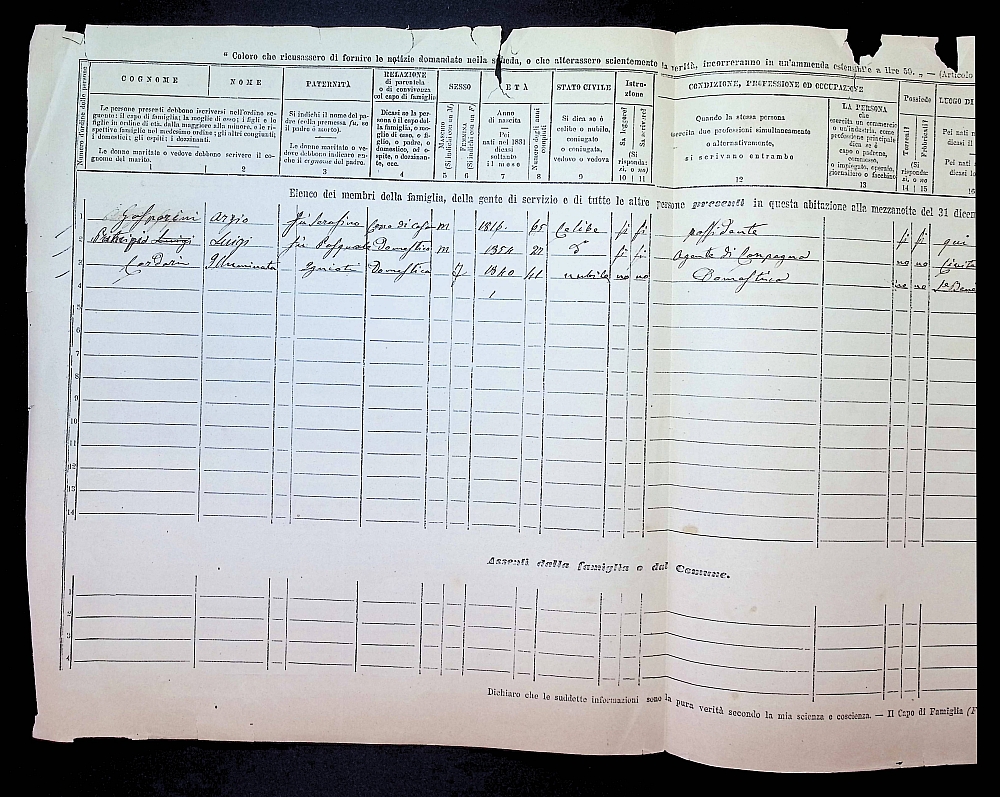 " Coloro che ricusassero di fornire le notizie domandate nella scheda, o che alterassero scientemente la verità, incorreranno in un'ammenda estensibile a lire 50. „ — (Articolo
Numero d'ordine delle persone
COGNOME
NOME
PATERNITÀ
RELAZIONE
di parentela
o di convivenza
col capo di famiglia
SESSO
ETÀ
STATO CIVILE
Istru-
zione
CONDIZIONE, PROFESSIONE OD OCCUPAZIONE
Possiede
LUOGO DI
Le persone presenti debbono iscriversi nell'ordine se-
guente: il capo di famiglia; la moglie di esso; i figli e le
figlie in ordine di età, dalla maggiore alla minore, e le ri-
spettive famiglie nel medesimo ordine; gli altri congiunti;
i domestici; gli ospiti; i dozzinanti.
Le donne maritate o vedove debbono scrivere il co-
gnome del marito.
Si indichi il nome del pa-
dre (colla premessa fu, se
il padre è morto).
Le donne maritate o ve-
dove debbono indicare an-
che il cognome del padre.
Dicasi se la per-
sona è il capo del-
la famiglia, o mo-
glie di esso, o fi-
glio, o padre, o
domestico, od o-
spite, o dozzinan-
te, ecc.
Maschio
(Si indichi con un M)
Femmina
(Si indichi con un F)
Anno
di nascita
Pei
nati nel 1881
dicasi
soltanto
il mese
Numero degli anni
compiuti
Si dica se è
celibe o nubile,
coniugato
o coniugata,
vedovo o vedova
Sa leggere?
Sa scrivere?
(Si
risponda:
sì, o no)
Quando la stessa persona
esercita due professioni simultaneamente
o alternativamente,
si scrivano entrambe
LA PERSONA
che
esercita un commercio
o un'industria, come
professione principale
dica se è
capo o padrone,
commesso,
o impiegato, operaio,
giornaliero o facchino
Terreni?
Fabbricati?
(Si
risponda:
sì, o no)
Pei nati n
dicasi il
Pei nati
dicasi lo
1 2 3 4 5 6 7 8 9 10 11 12 13 14 15 16
Elenco dei membri della famiglia, della gente di servizio e di tutte le altre persone presenti in questa abitazione alla mezzanotte del 31 dicem
1 Gasparini Fu Serafino Capo di casa m 1816 65 Celibe si si possidente si si qui
2 Luigi Luigi Fu Pasquale Domestico m 1854 Agente di Campagna no no
3 Illuminata Domestica f 1840 41 nubile no no Domestica no no
4
5
6
7
8
9
10
11
12
13
14
Assenti dalla famiglia o dal Comune.
1
2
3
4
Dichiaro che le suddette informazioni sono la pura verità secondo la mia scienza e coscienza. — Il Capo di Famiglia (F